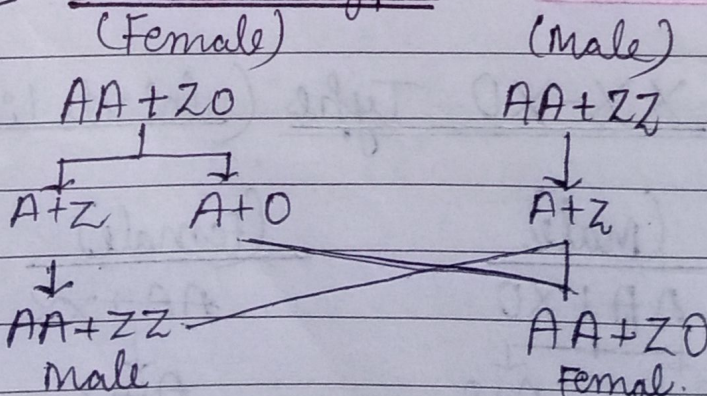 (Female) (Male)
AA+ZO AA+ZZ
A+Z A+O A+Z
AA+ZZ AA+ZO
Male Femal.